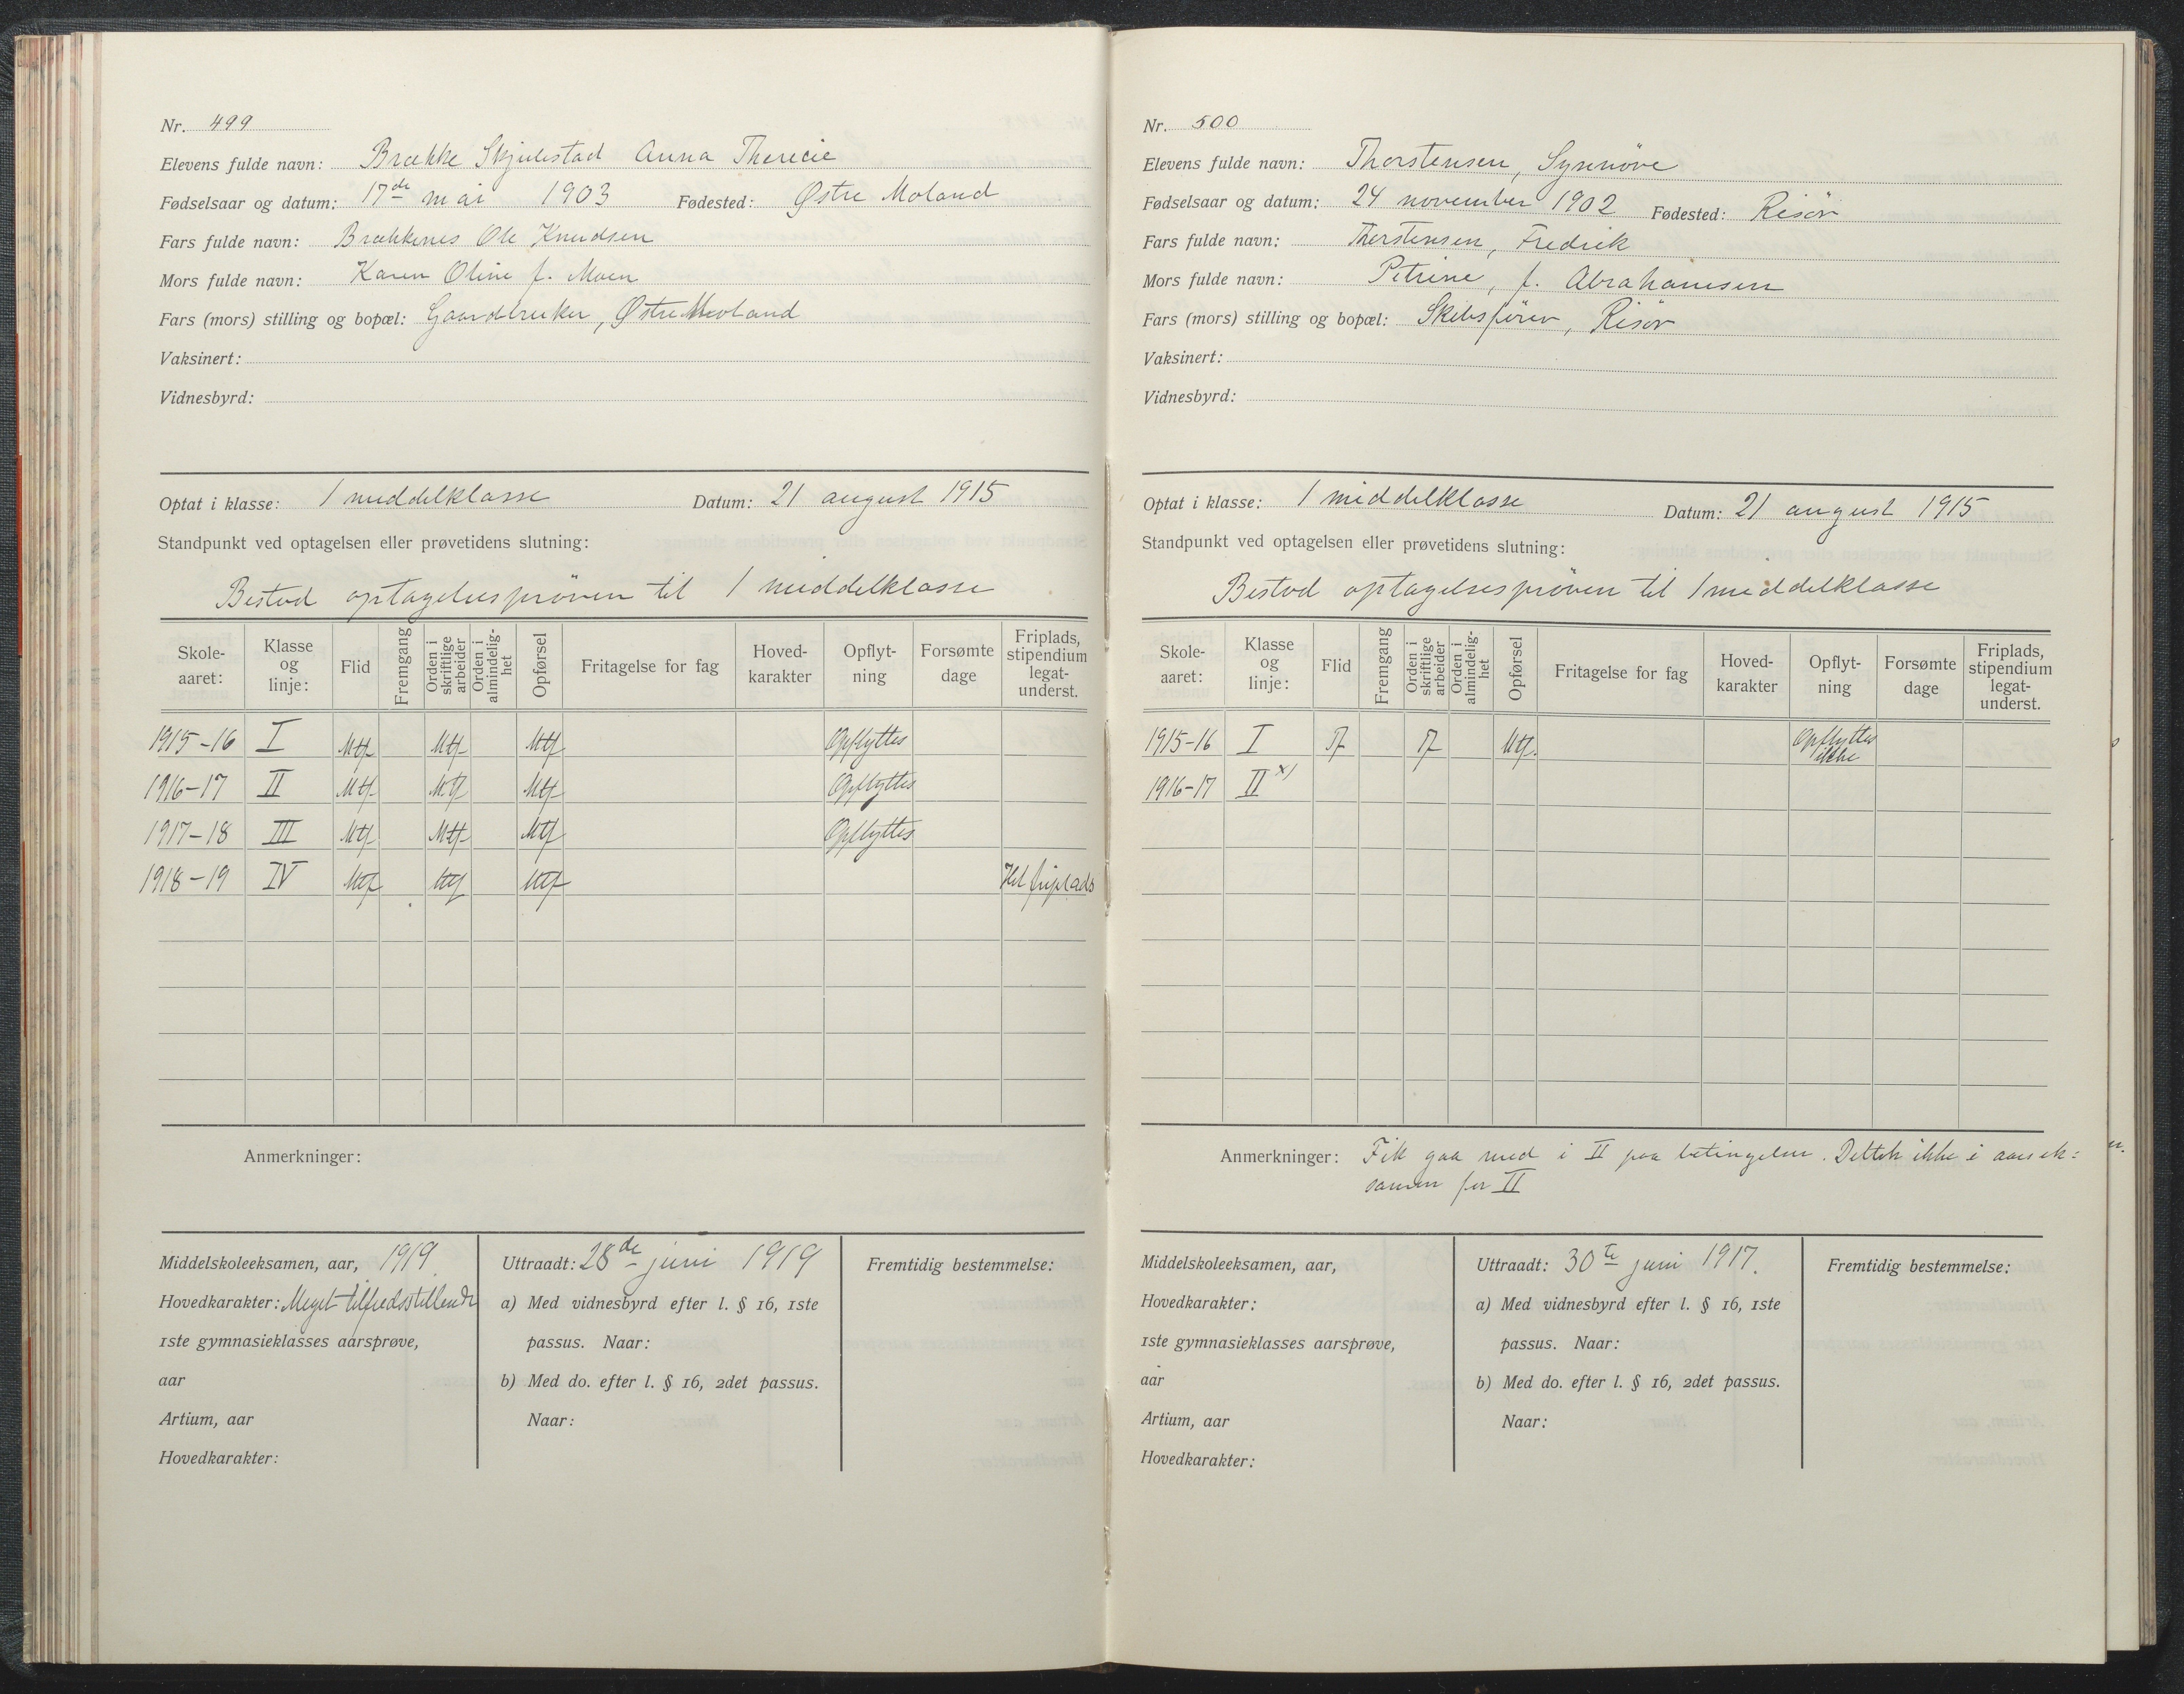 Nr. 499
Elevens fulde navn: Brække Skjulestad Anna Therecie
Fødselsaar og datum: 17de mai 1903 Fødested: Østre Moland
Fars fulde navn: Brækkenes Ole Knudsen
Mors fulde navn: Karen Oline f. Moen
Fars (mors) stilling og bopæl: Gaardbruker, Østre Moland
Vaksinert:
Vidnesbyrd:
Optat i klasse: 1 middelklasse Datum: 21 august 1915
Standpunkt ved optagelsen eller prøvetidens slutning:
Bestod optagelsesprøven til 1 middelklasse
Skole-aaret: Klasse og linje: Flid Fremgang Orden i skriftlige arbeider Orden i almindelig-het Opførsel Fritagelse for fag Hoved-karakter Opflyt-ning Forsømte dage Friplads, stipendium legat-underst.
1915-16 I Mtf Mtf Mtf Opflyttes
1916-17 II Mtf Mtf Mtf Opflyttes
1917-18 III Mtf Mtf Mtf Opflyttes
1918-19 IV Mtf Mtf Mtf Hel friplads
Anmerkninger:
Middelskoleeksamen, aar, 1919
Hovedkarakter: Meget tilfredsstillende
1ste gymnasieklasses aarsprøve,
aar
Artium, aar
Hovedkarakter:
Uttraadt: 28de juni 1919
a) Med vidnesbyrd efter l. § 16, 1ste
passus. Naar:
b) Med do. efter l. § 16, 2det passus.
Naar:
Fremtidig bestemmelse:
Nr. 500
Elevens fulde navn: Thorstensen, Synnöve
Fødselsaar og datum: 24 november 1902 Fødested: Risör
Fars fulde navn: Thorstensen, Fredrik
Mors fulde navn: Petrine, f. Abrahamsen
Fars (mors) stilling og bopæl: Skibsfører, Risör
Vaksinert:
Vidnesbyrd:
Optat i klasse: 1 middelklasse Datum: 21 august 1915
Standpunkt ved optagelsen eller prøvetidens slutning:
Bestod optagelsesprøven til 1 middelklasse
Skole-aaret: Klasse og linje: Flid Fremgang Orden i skriftlige arbeider Orden i almindelig-het Opførsel Fritagelse for fag Hoved-karakter Opflyt-ning Forsømte dage Friplads, stipendium legat-underst.
1915-16 I Tf Tf Mtf. Opflyttes ikke
1916-17 II x)
Anmerkninger: Fik gaa med i II paa betingelse. Deltok ikke i aarsek=
samen for II
Middelskoleeksamen, aar,
Hovedkarakter:
1ste gymnasieklasses aarsprøve,
aar
Artium, aar
Hovedkarakter:
Uttraadt: 30te juni 1917.
a) Med vidnesbyrd efter l. § 16, 1ste
passus. Naar:
b) Med do. efter l. § 16, 2det passus.
Naar:
Fremtidig bestemmelse: